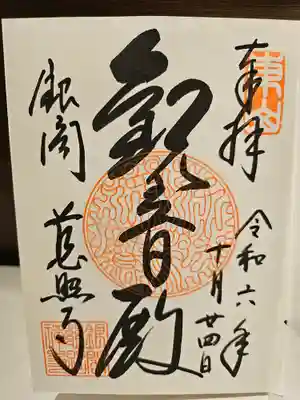 奉拝
令和六年
十月廿四日
観音殿
銀閣
慈照寺
東山